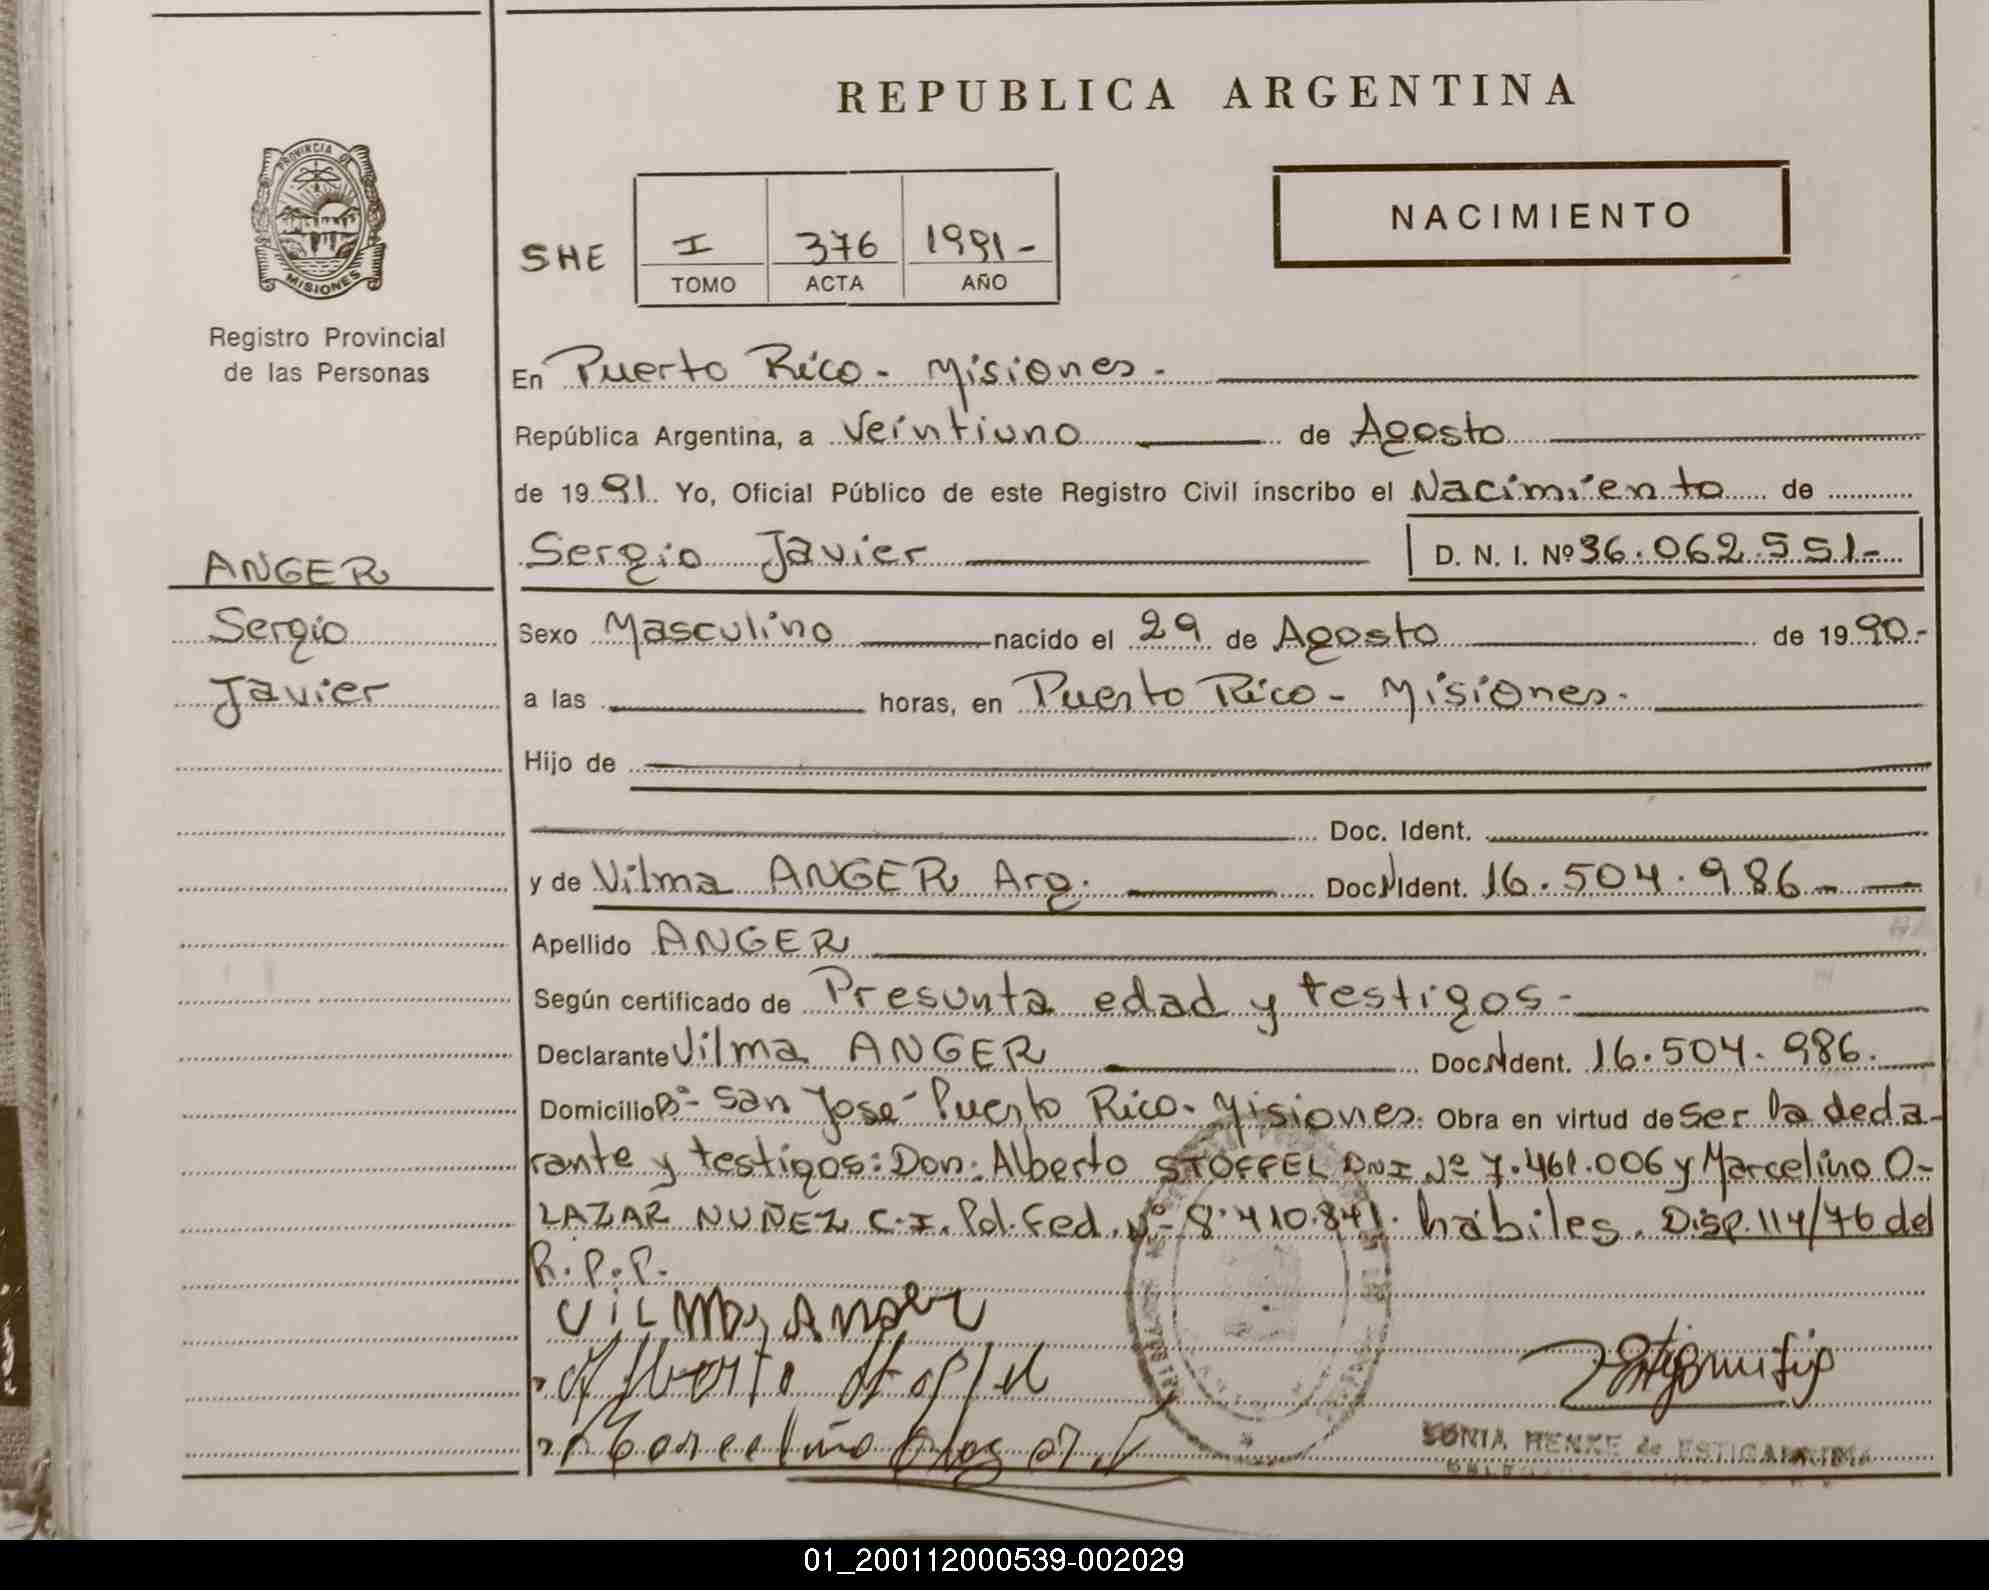 REPUBLICA ARGENTINA
PROVINCIA DE
MISIONES
Registro Provincial
de las Personas
NACIMIENTO
SHE I 376 1991-
TOMO ACTA AÑO
En Puerto Rico - Misiones -
República Argentina, a Veintiuno de Agosto
de 1991. Yo, Oficial Público de este Registro Civil inscribo el Nacimiento de
Sergio Javier D. N. I. Nº 36.062.551-
ANGER
Sergio
Javier
Sexo Masculino nacido el 29 de Agosto de 1990.-
a las horas, en Puerto Rico - Misiones.
Hijo de
Doc. Ident.
y de Vilma ANGER Arg. Doc. N Ident. 16.504.986-
Apellido ANGER
Según certificado de Presunta edad y testigos-
Declarante Vilma ANGER Doc. N Ident. 16.504.986.
Domicilio Bº- San José - Puerto Rico - Misiones. Obra en virtud de ser la decla-
rante y testigos: Don: Alberto STOFFEL DNI Nº 7.461.006 y Marcelino O-
LAZAR NUÑEZ C.I. Pol. Fed. Nº 8.410.841. habiles. Disp. 114/76 del
R.P.P.
Vilma Anger
Alberto Stoffel
Marcelino Olazar
SONIA HENKE de ESTIGARRIBIA
01_200112000539-002029